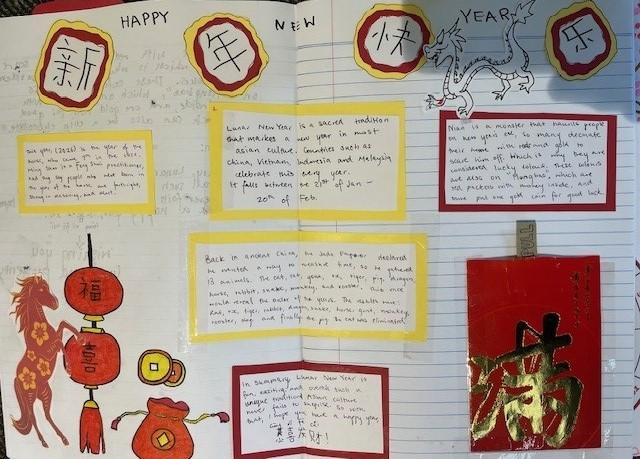 HAPPY NEW YEAR
新 年 快 乐
This year, (2026) is the year of the
horse, who came 7th in the race.
Ming Shan is a Feng Shui practitioner,
and say people who were born in
the year of the horse are forthright,
strong in
Lunar New Year is a sacred tradition
that marks a new year in most
asian culture. Countries such as
China, Vietnam, Indonesia and Malaysia
celebrate this every year.
It falls between the 21st of Jan -
20th of Feb.
Nian is a monster that haunts people
on new years eve, so many decorate
their home with red and gold to
scare him off. Which is why they are
considered lucky colours, these colours
are also on "Hongbao", which are
red packets with money inside, and
some put one gold coin for good luck.
Back in ancient China, the Jade Emperor declared
he wanted a way to measure time, so he gathered
13 animals. The cat, rat, goat, ox, tiger, pig, dragon,
horse, rabbit, snake, monkey, and rooster,
would reveal the order of the years. The results were:
Rat, ox, tiger, rabbit, dragon, snake, horse, goat, monkey,
rooster, dog and finally the pig. So cat was eliminated.
福
喜
PULL
满
In summary, Lunar New Year is
fun, exciting and overall such a
unique tradition! Asian culture
never fails to inspire. So with
that, I hope you have a happy year,